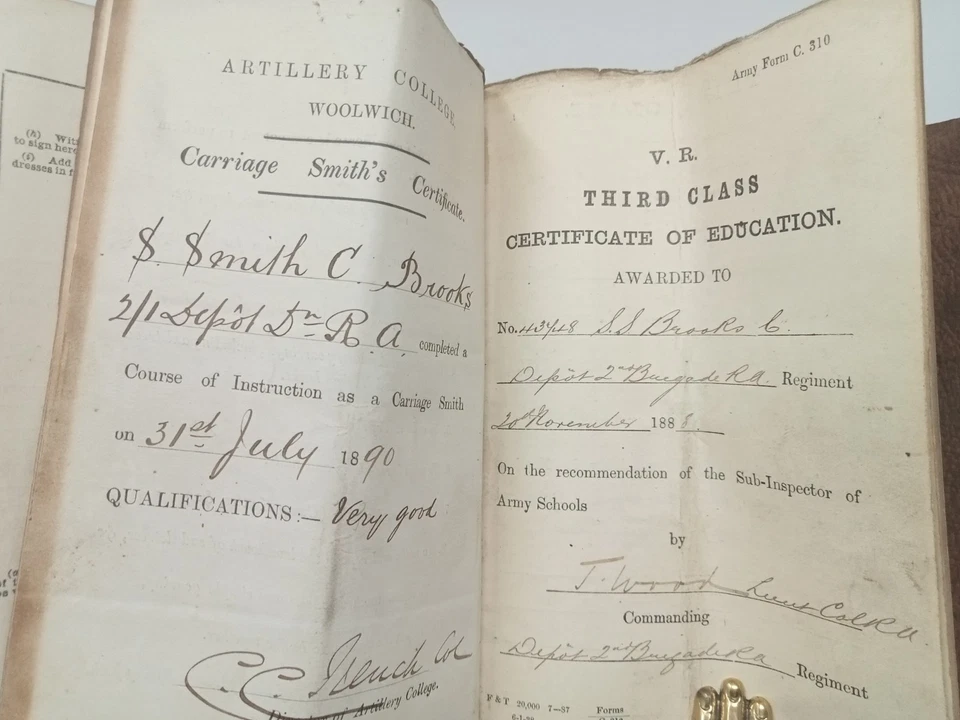 (h) Wit
to sign here
(i) Add
dresses in f
ARTILLERY COLLEGE,
WOOLWICH.
Carriage Smith's Certificate.
S. Smith C. Brooks
2/1 Depôt Dn R.A. completed a
Course of Instruction as a Carriage Smith
on 31st July 1890
QUALIFICATIONS:— Very good
Col
Director of Artillery College.
Army Form C. 310
V. R.
THIRD CLASS
CERTIFICATE OF EDUCATION.
AWARDED TO
No. S.S Brooks C.
Depôt 2nd Brigade RA. Regiment
20th November 1888.
On the recommendation of the Sub-Inspector of
Army Schools
by
T. Wood Lieut Col RA
Commanding
Depôt 2nd Brigade RA Regiment
F & T 20,000 7—87 Forms